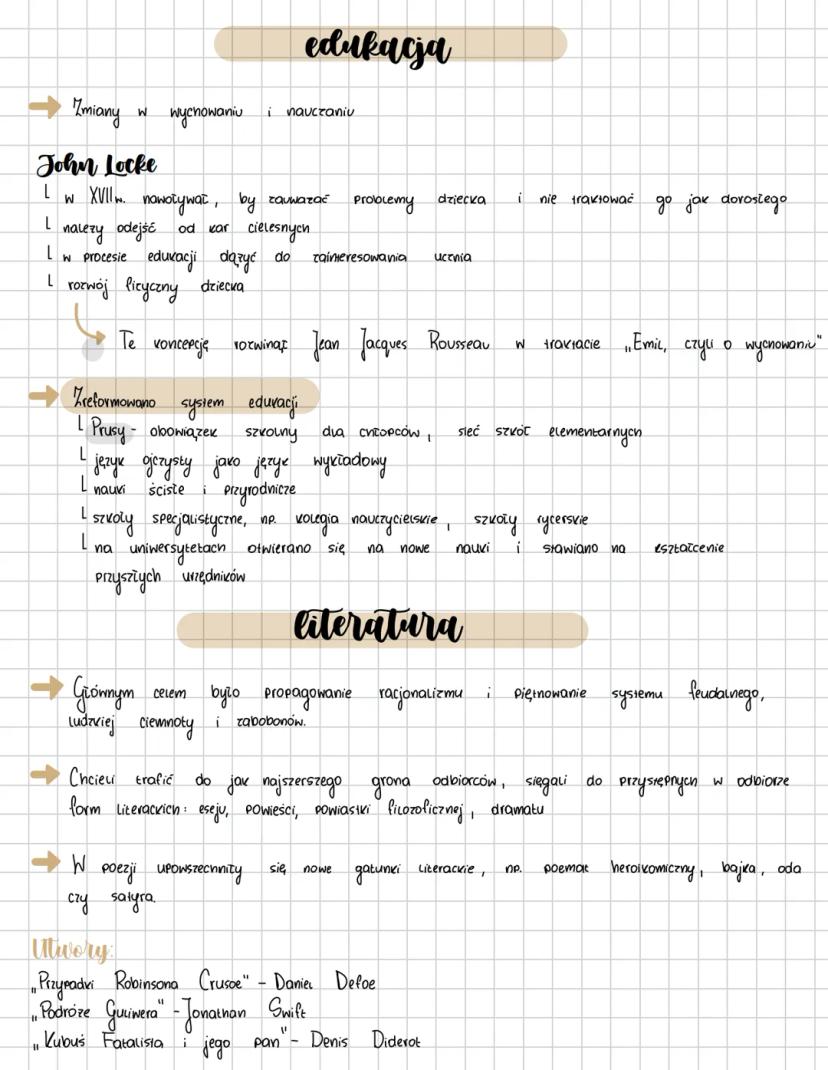 edukacja
Zmiany w wychowaniu i nauczaniu
John Locke
w XVII w. nawoływał, by zauważać problemy dziecka i nie traktować go jak dorosłego
należy odejść od kar cielesnych
w procesie edukacji dążyć do zainteresowania ucznia
rozwój fizyczny dziecka
Te koncepcję rozwinął Jean Jacques Rousseau w traktacie „Emil, czyli o wychowaniu"
Zreformowano system edukacji
Prusy - obowiązek szkolny dla chłopców, sieć szkół elementarnych
język ojczysty jako język wykładowy
nauki ścisłe i przyrodnicze
szkoły specjalistyczne, np. kolegia nauczycielskie, szkoły rycerskie
na uniwersytetach otwierano się na nowe nauki i stawiano na kształcenie
przyszłych urzędników
literatura
Głównym celem było propagowanie racjonalizmu i piętnowanie systemu feudalnego,
ludzkiej ciemnoty i zabobonów.
Chcieli trafić do jak najszerszego grona odbiorców, sięgali do przystępnych w odbiorze
form literackich: eseju, powieści, powiastki filozoficznej, dramatu
W poezji upowszechniły się nowe gatunki literackie, np. poemat heroikomiczny, bajka, oda
czy satyra.
Utwory:
„Przypadki Robinsona Crusoe" - Daniel Defoe
„Podróże Guliwera" - Jonathan Swift
„Kubuś Fatalista i jego pan" - Denis Diderot